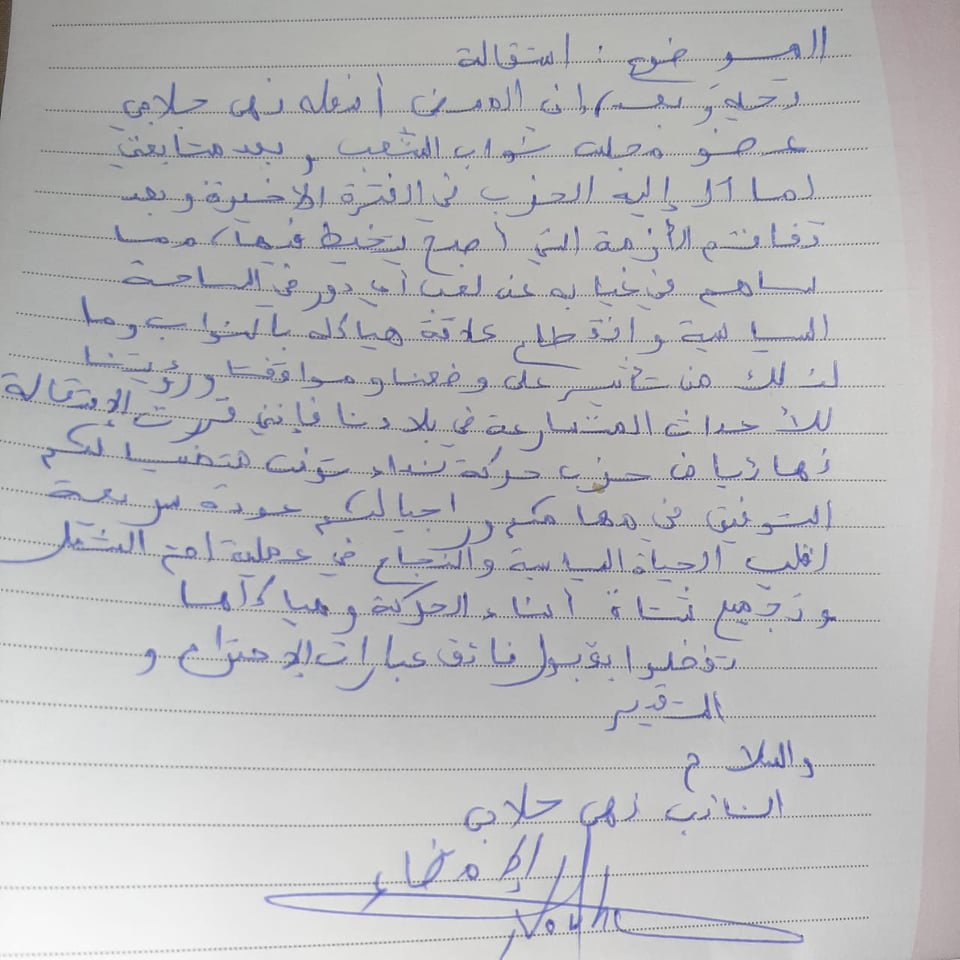 الموضوع : استقالة
تحية وبعد، إني الممضي أسفله نهى حلامي
عضو مجلس نواب الشعب وبعد متابعتي
لما آل إليه الحزب في الفترة الأخيرة وبعد
تفاقم الأزمة التي أصبح يتخبط فيها، مما
ساهم في غيابه عن لعب أي دور في الساحة
السياسية وانقطاع علاقة هياكله بالنواب وما
لذلك من تأثير على وضعنا ومواقفنا ورؤيتنا
للأحداث المتسارعة في بلادنا فإنني قررت الإستقالة
نهائيا من حزب حركة نداء تونس متمنيا لكم
التوفيق في مهامكم و عودة سريعة
لقلب الحياة السياسية والنجاح في عملية لم الشمل
وتجميع شتاة أبناء الحركة وهياكلها
تفضلوا بقبول فائق عبارات الإحترام و
التقدير
والسلام
النائب نهى حلامي
الإمضاء
Nouha